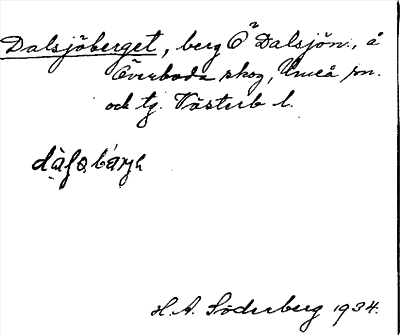 Dalsjöberget, berg Ö² Dalsjön, å
Överboda skog, Umeå sn.
och tg. Västerb l.
H. A. Söderberg 1934.